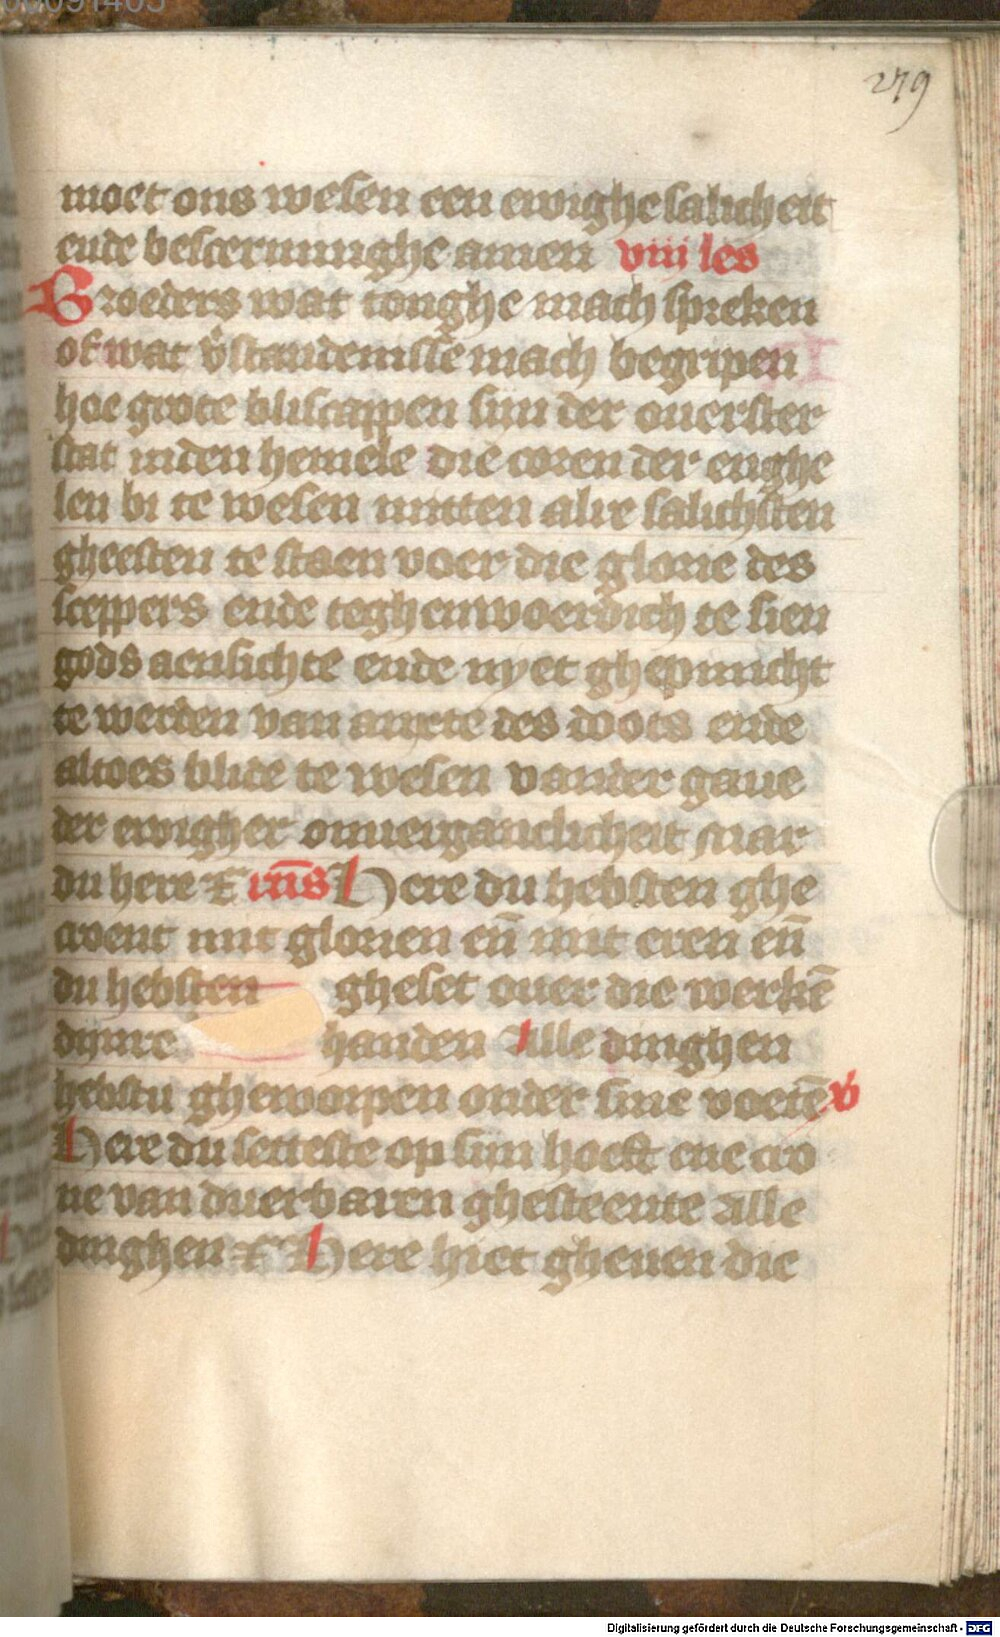 279
moet ons wesen een ewighe salicheit
ende bescerminghe amen viij les
Broeders wat tonghe mach spreken
of wat v̄standenisse mach begripen
hoe grote bliscappen sijn der ouerster
stat inden hemele die coren der enghe
len bi te wesen mitten alre salichsten
gheesten te staen voer die glorie des
sceppers ende teghenwoerdich te sien
gods aensichte ende nyet ghepinicht
te werden van anxte des doots ende
altoes blide te wesen vander gaue
der ewigher onuerganclicheit Mar
du here Here du hebsten ghe
croent mit glorien en̄ mit eren en̄
du hebsten gheset ouer die werkē
dijnre handen Alle dinghen
hebstu gheworpen onder sine voetē v̄
Here du setteste op sijn hoeft ene cro
ne van duerbaren ghesteente Alle
dinghen Here hiet gheuen die
Digitalisierung gefördert durch die Deutsche Forschungsgemeinschaft - DFG